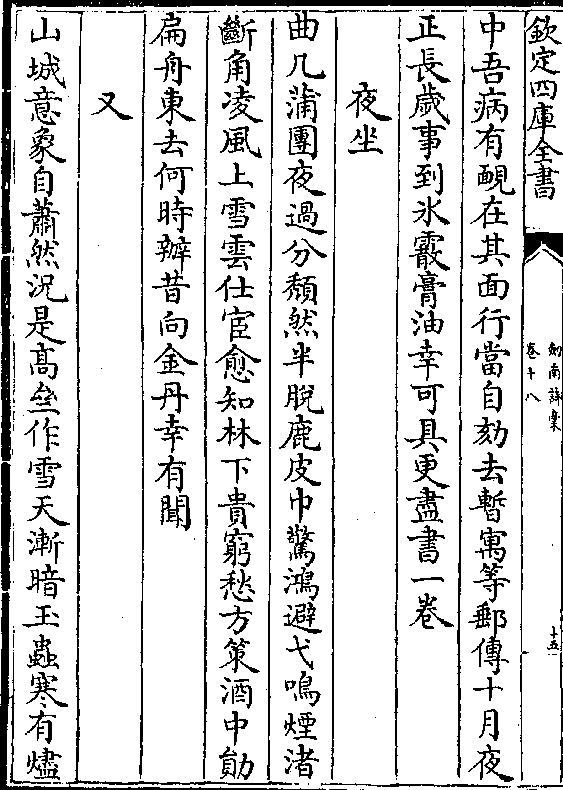 欽定四庫全書
劍南詩稾
卷十八
十五
中吾病有靦在其面行當自劾去暫寓等郵傳十月夜
正長歲事到氷霰膏油幸可具更盡書一卷
夜坐
曲几蒲團夜過分頽然半脫鹿皮巾驚鴻避弋鳴煙渚
斷角凌風上雪雲仕宦愈知林下貴窮愁方策酒中勛
扁舟東去何時辦昔向金丹幸有聞
又
山城意象自蕭然況是髙亝作雪天漸暗玉蟲寒有燼